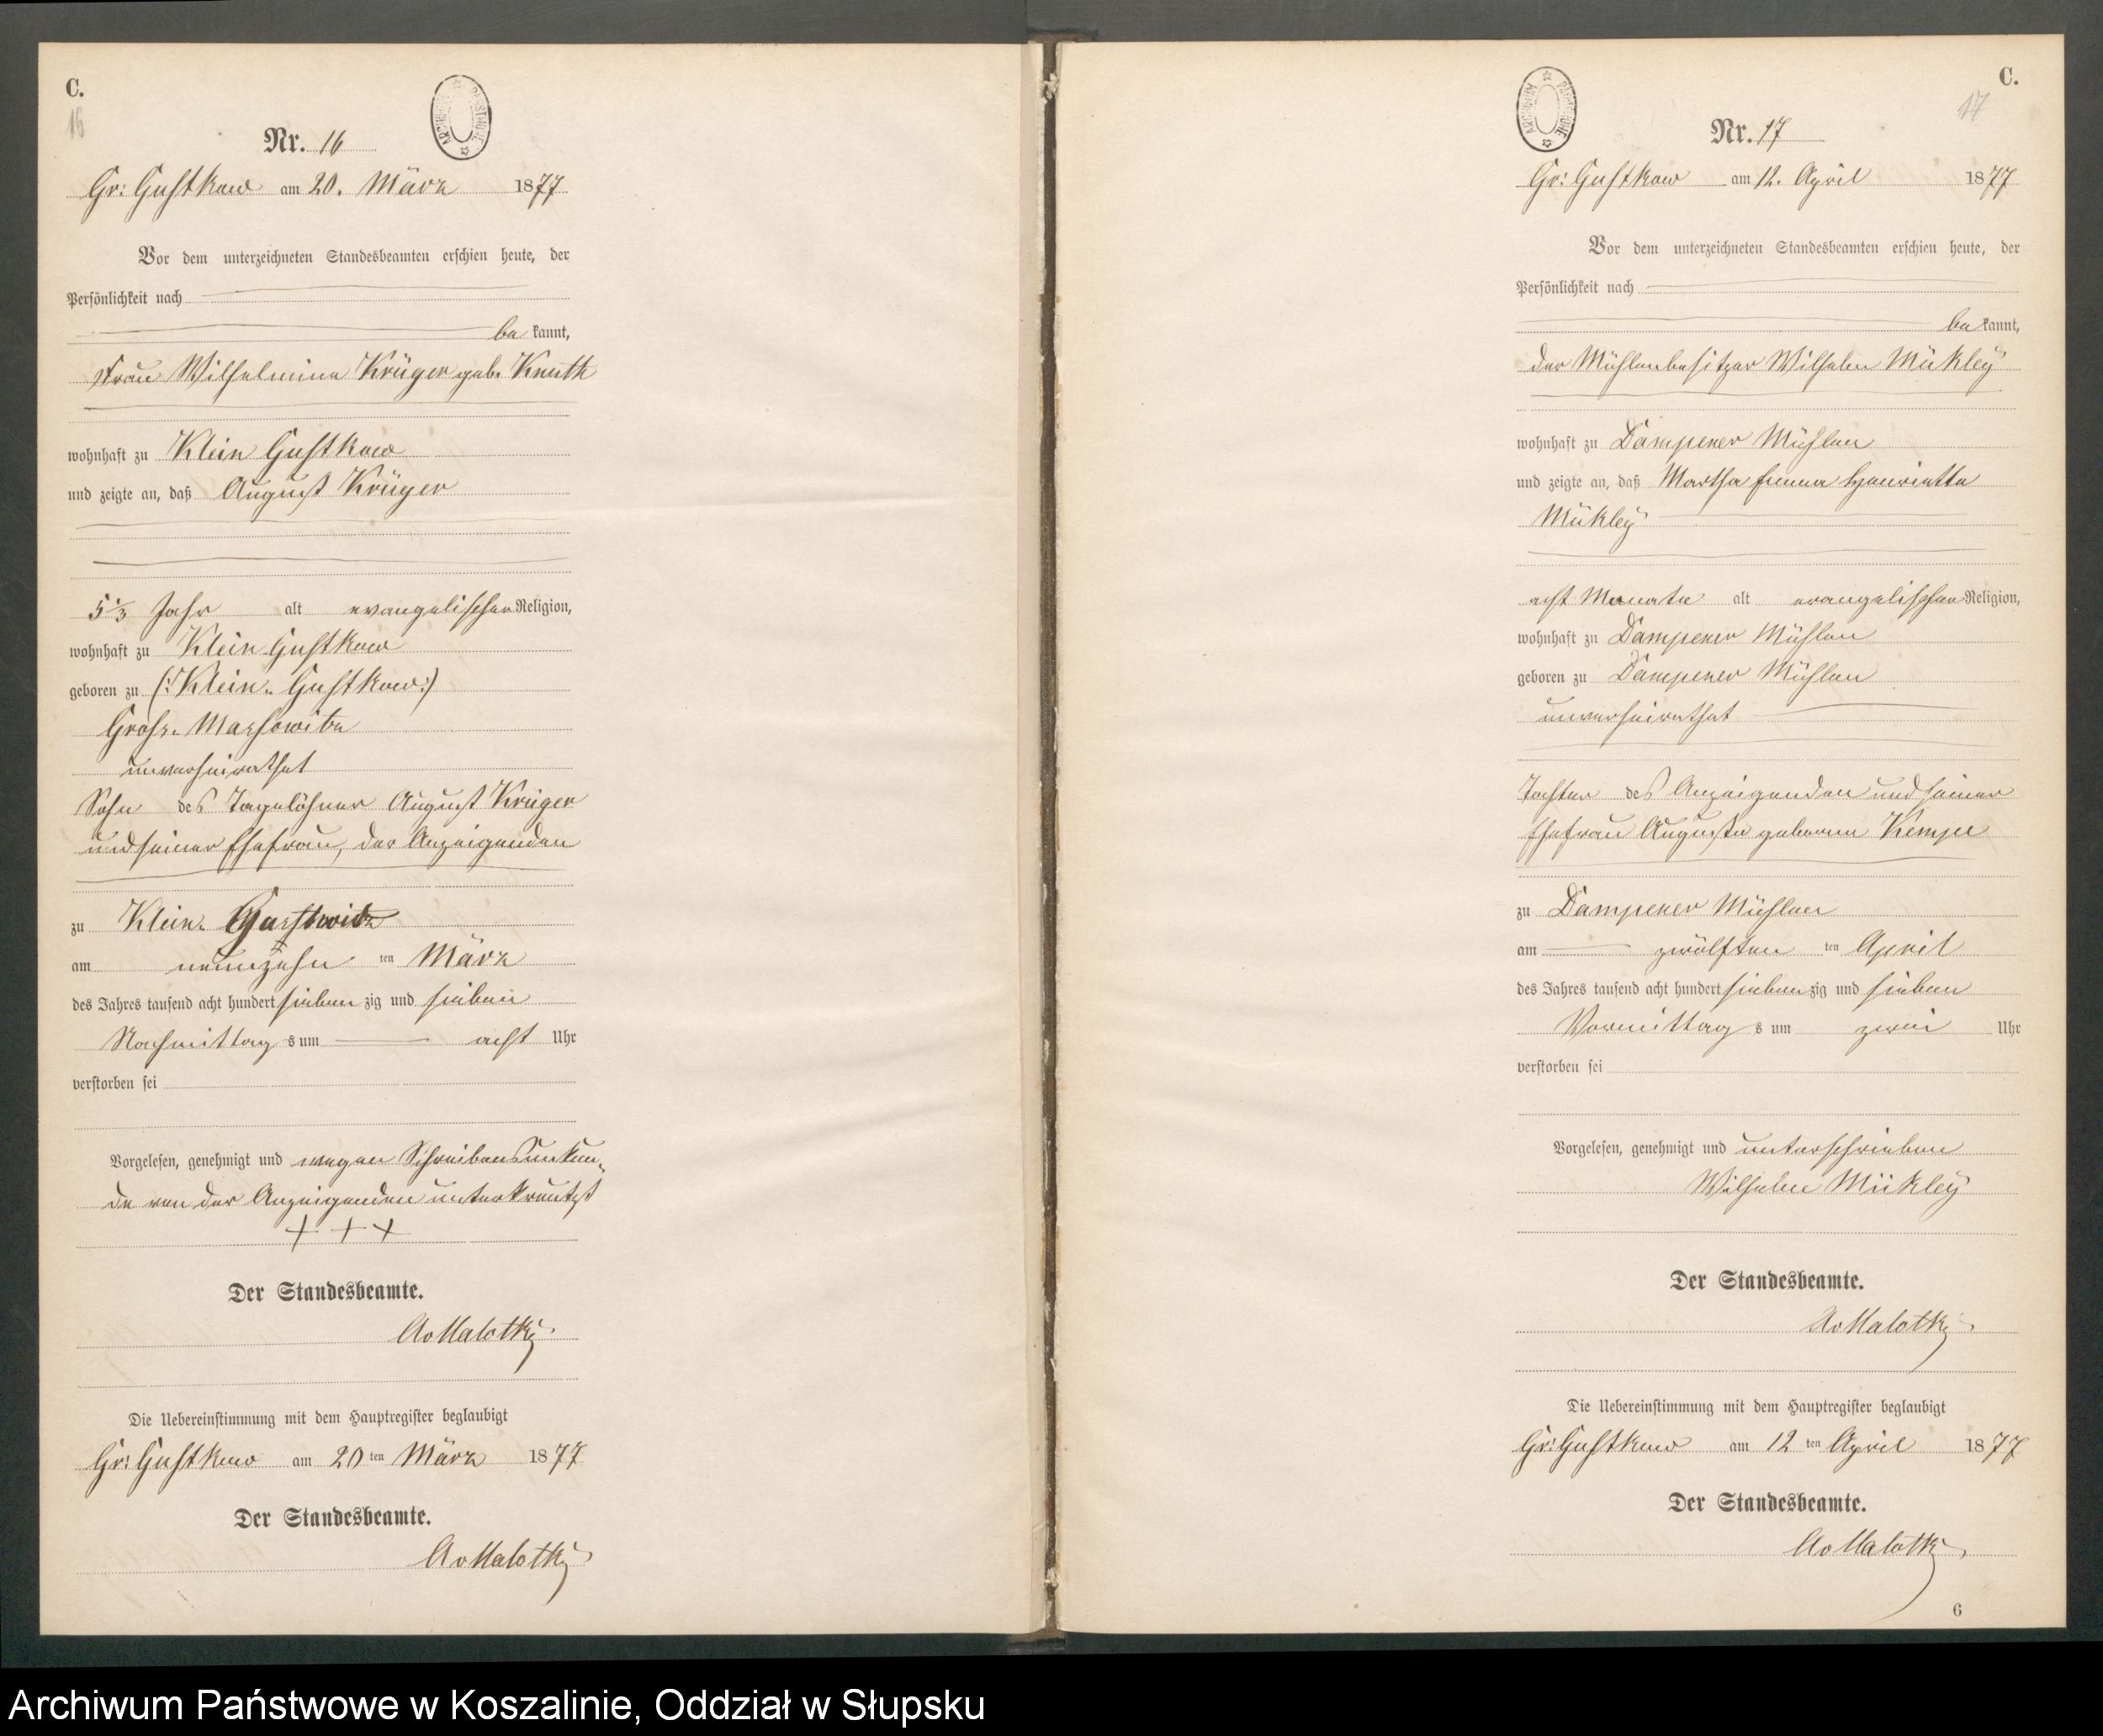 C.
16
Nr. 16
Gr: Gustkow am 20. März 1877
Vor dem unterzeichneten Standesbeamten erschien heute, der
Persönlichkeit nach
be kannt,
Frau Wilhelmine Krüger geb. Knuth
wohnhaft zu Klein Gustkow
und zeigte an, daß August Krüger
5 1/3 Jahr alt evangelischer Religion,
wohnhaft zu Klein Gustkow
geboren zu (: Klein- Gustkow :)
Gross- Massowitz
unverheirathet
Sohn des Tagelöhner August Krüger
und seiner Ehefrau, der Anzeigenden
zu Klein-
am neunzehn ten März
des Jahres tausend acht hundert sieben zig und sieben
Nachmittag s um acht Uhr
verstorben sei
Vorgelesen, genehmigt und wegen Schreibensunkun-
de von der Anzeigenden unterkreutzt
+ + +
Der Standesbeamte.
AvMalotky
Die Uebereinstimmung mit dem Hauptregister beglaubigt
Gr: Gustkow am 20 ten März 1877
Der Standesbeamte.
AvMalotky
C.
17
Nr. 17
Gr: Gustkow am 12. April 1877
Vor dem unterzeichneten Standesbeamten erschien heute, der
Persönlichkeit nach
be kannt,
der Mühlenbesitzer Wilhelm Mükley
wohnhaft zu Dampener Mühlen
und zeigte an, daß Martha Emma Henriette
Mükley
acht Monate alt evangelischen Religion,
wohnhaft zu Dampener Mühlen
geboren zu Dampener Mühlen
unverheirathet
Tochter des Anzeigenden und seiner
Ehefrau Auguste geborene Kempe
zu Dampener Mühlen
am zwölften ten April
des Jahres tausend acht hundert sieben zig und sieben
Vormittag s um zwei Uhr
verstorben sei
Vorgelesen, genehmigt und unterschrieben
Wilhelm Mükley
Der Standesbeamte.
AvMalotky
Die Uebereinstimmung mit dem Hauptregister beglaubigt
Gr: Gustkow am 12 ten April 1877
Der Standesbeamte.
AvMalotky
6
Archiwum Państwowe w Koszalinie, Oddział w Słupsku